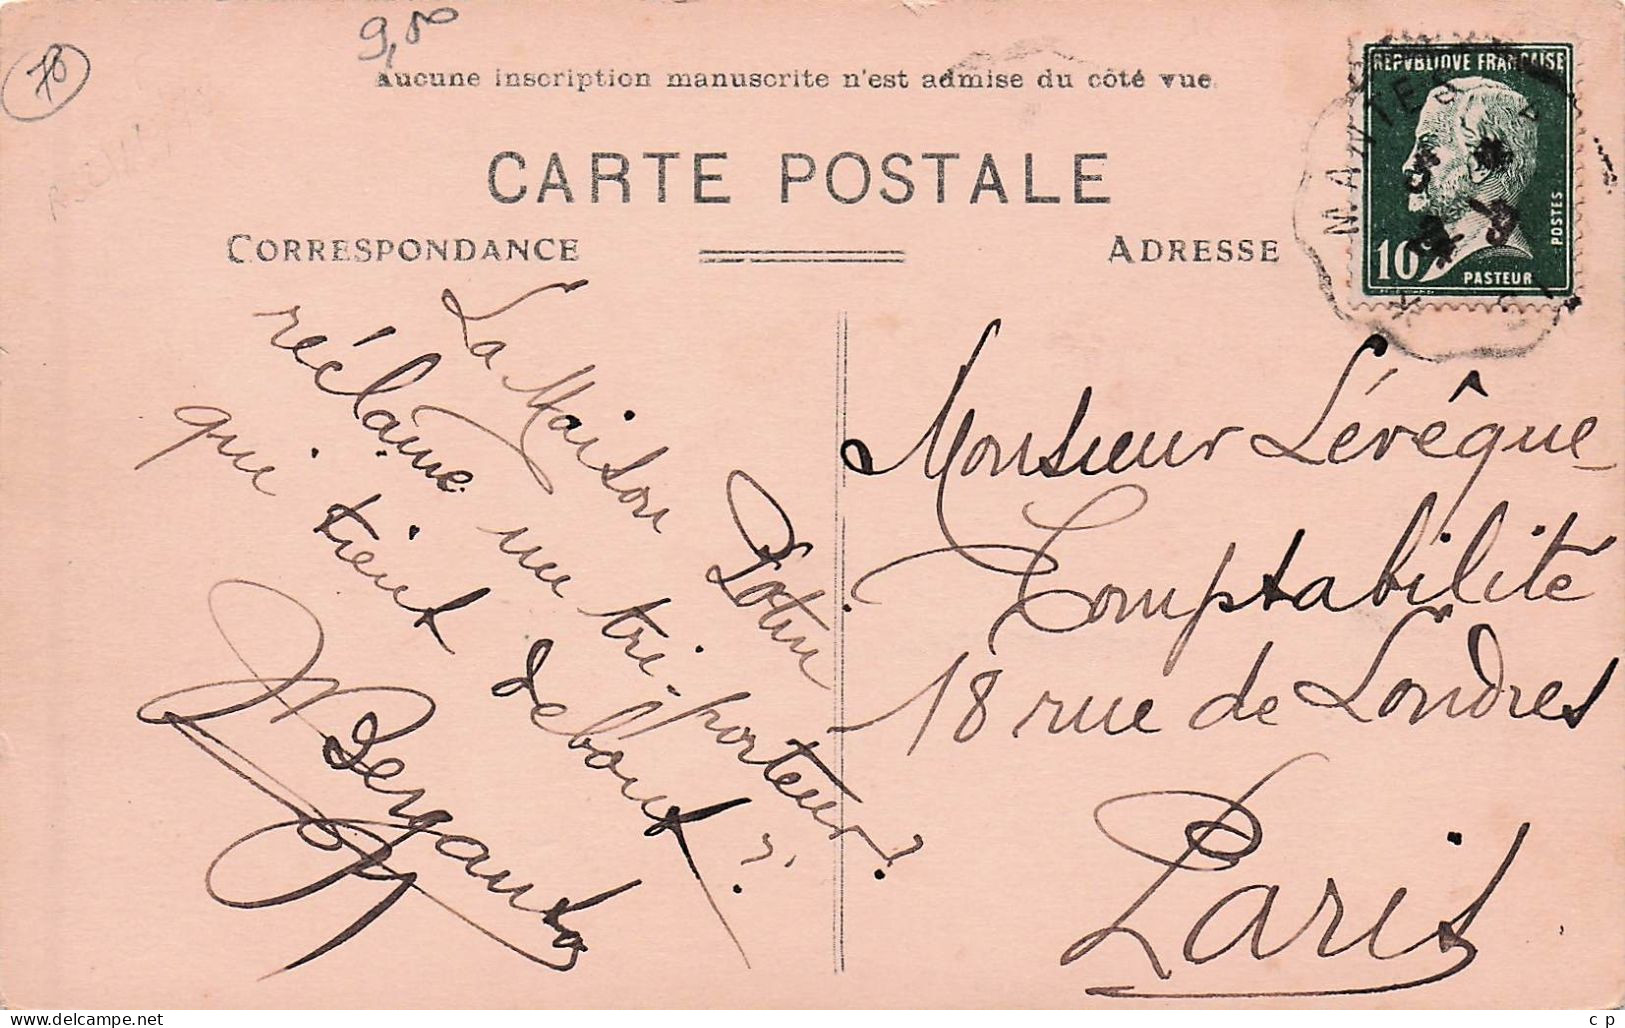 9,00
78
Aucune inscription manuscrite n'est admise du côté vue.
CARTE POSTALE
CORRESPONDANCE
ADRESSE
REPVBLIQVE FRANCAISE
POSTES
10
PASTEUR
MANTES
La Maison Potin
réclame un tri-porteur?
qui tient debout?
Monsieur Lévêque
Comptabilité
18 rue de Londres
Paris
c p